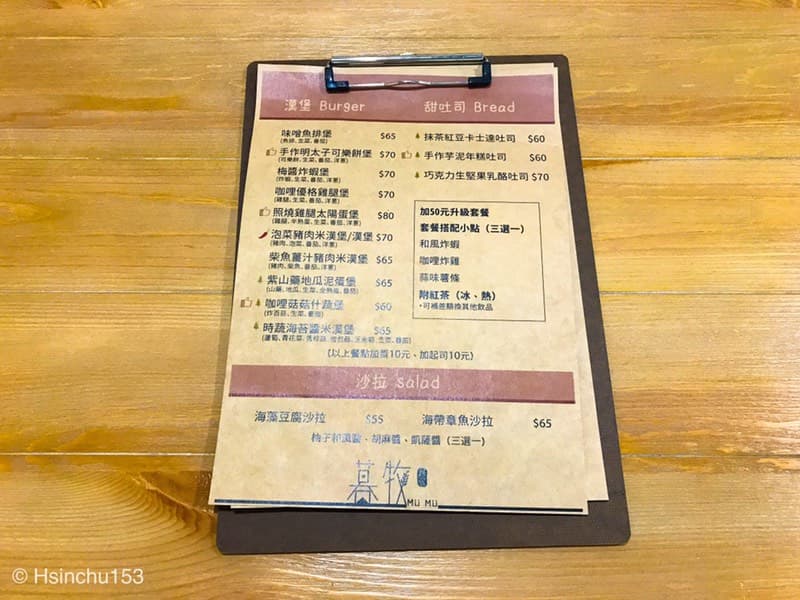 漢堡 Burger
味噌魚排堡 $65
(魚排、生菜、番茄)
手作明太子可樂餅堡 $70
(可樂餅、生菜、番茄、洋蔥)
梅醬炸蝦堡 $70
(炸蝦、生菜、番茄、洋蔥)
咖哩優格雞腿堡 $70
(雞腿、生菜、番茄、洋蔥)
照燒雞腿太陽蛋堡 $80
(雞腿、半熟蛋、生菜、番茄、洋蔥)
泡菜豬肉米漢堡/漢堡 $70
(豬肉、泡菜、番茄、洋蔥)
柴魚薑汁豬肉米漢堡 $65
(豬肉、柴魚、番茄、洋蔥)
紫山藥地瓜泥蛋堡 $65
(山藥、地瓜、生菜、全熟蛋、番茄)
咖哩菇菇什蔬堡 $60
(炸百菇、生菜、番茄)
時蔬海苔醬米漢堡 $65
(以上餐點加蛋10元、加起司10元)
甜吐司 Bread
抹茶紅豆卡士達吐司 $60
手作芋泥年糕吐司 $70
巧克力生堅果乳酪吐司 $70
加50元升級套餐
套餐搭配小點（三選一）
和風炸蝦
咖哩炸雞
蒜味薯條
附紅茶（冰、熱）
•可補差額換其他飲品
沙拉 salad
海藻豆腐沙拉 $55
海帶章魚沙拉 $65
柚子和風醬、胡麻醬、凱薩醬（三選一）
暮牧
Mü Mü
© Hsinchu153